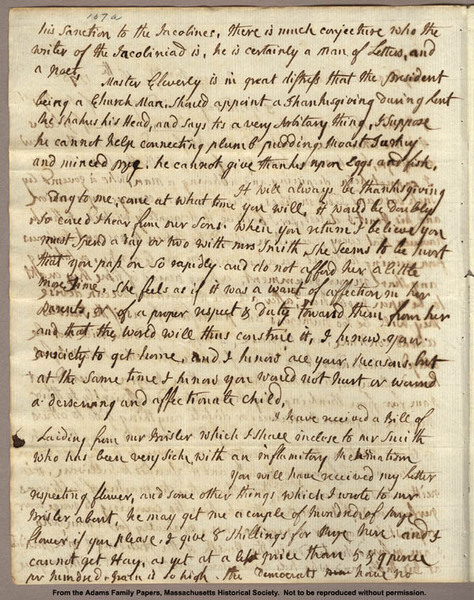 107a
his Sanction to the Jacobines, there is much conjecture who the
writer of the Jacobiniad is, he is certainly a man of Letters, and
a poet,
Master Cleverly is in great distress that the president
being a Church Man, should appoint a Thanksgiving during Lent
he shakes his Head, and says tis a very Arbitary thing, I suppose
he cannot help connecting plumb puddings Roast Turkey
and minced pye. he cannot give thanks upon Eggs and fish,
It will always be thanksgiving
day to me, come at what time you will, it would be doubly
so could I hear from our Sons. when you return I believe you
must spend a day or two with mrs Smith She seems to be hurt
that you pass on so rapidly and do not afford her a little
more time, She feels as if it was a want of affection in her
Parents, of a proper respect & duty toward them from her
and that the world will thus construe it, I know your
anxiety to get home, and I know all your Reasons, but
at the same time I know you would not hurt or wound
a deserving and affectionate child,
I have received a Bill of
Laiding from mr Brisler which I shall inclose to mr Smith
who has been very Sick, with an inflamitory
You will have received my Letter
respecting flower, and some other things which I wrote to mr
Brisler about, he may get me a couple of hundred of Rye
flower if you please, I give 8 shillings for Rye here and I
cannot get Hay, as yet at a less price than 5 & 9 pence
pr hundred. Grain is so high. the Democrats have no
From the Adams Family Papers, Massachusetts Historical Society. Not to be reproduced without permission.